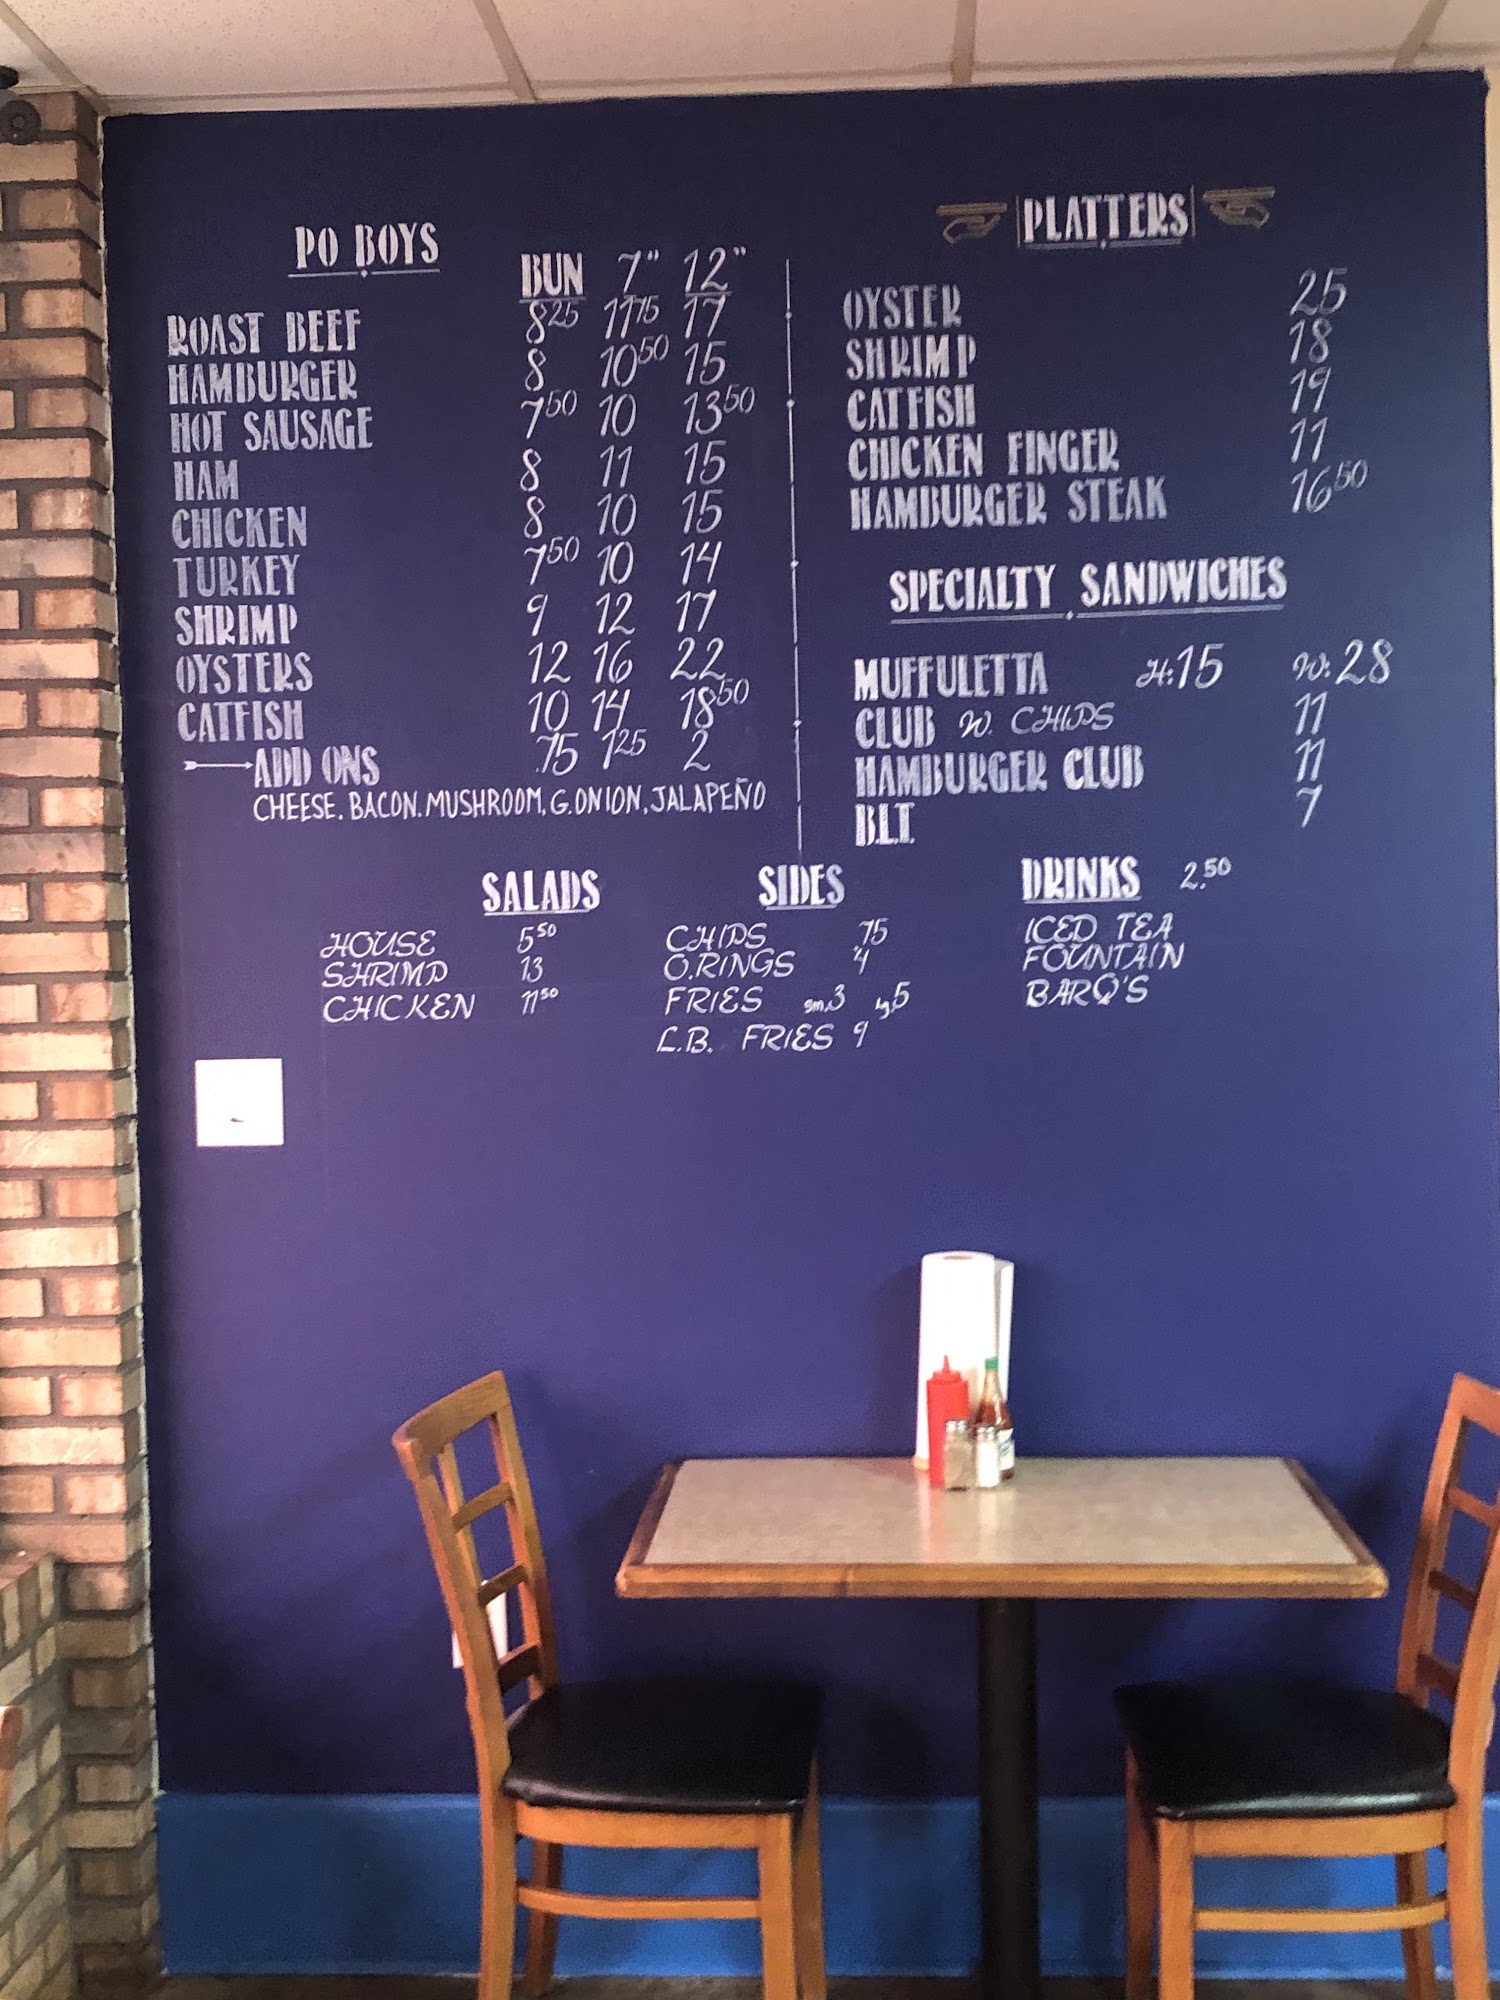 PO BOYS
BUN 7" 12"
ROAST BEEF 8 25 11 75 17
HAMBURGER 8 10 50 15
HOT SAUSAGE 7 50 10 13 50
HAM 8 11 15
CHICKEN 8 10 15
TURKEY 7 50 10 14
SHRIMP 9 12 17
OYSTERS 12 16 22
CATFISH 10 14 18 50
ADD ONS .75 1 25 2
CHEESE. BACON. MUSHROOM, G.ONION, JALAPEÑO
PLATTERS
OYSTER 25
SHRIMP 18
CATFISH 19
CHICKEN FINGER 11
HAMBURGER STEAK 16 50
SPECIALTY SANDWICHES
MUFFULETTA H:15 W:28
CLUB W. CHIPS 11
HAMBURGER CLUB 11
B.L.T. 7
SALADS
HOUSE 5 50
SHRIMP 13
CHICKEN 11 50
SIDES
CHIPS .75
O.RINGS 4
FRIES sm.3 lg.5
L.B. FRIES 9
DRINKS 2.50
ICED TEA
FOUNTAIN
BARQ'S